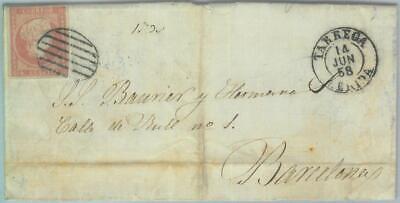 CORREOS
TARREGA
14
JUN
58
LERIDA
S.S. Baurier y Hermano
Calle de
no 1.
Barcelona